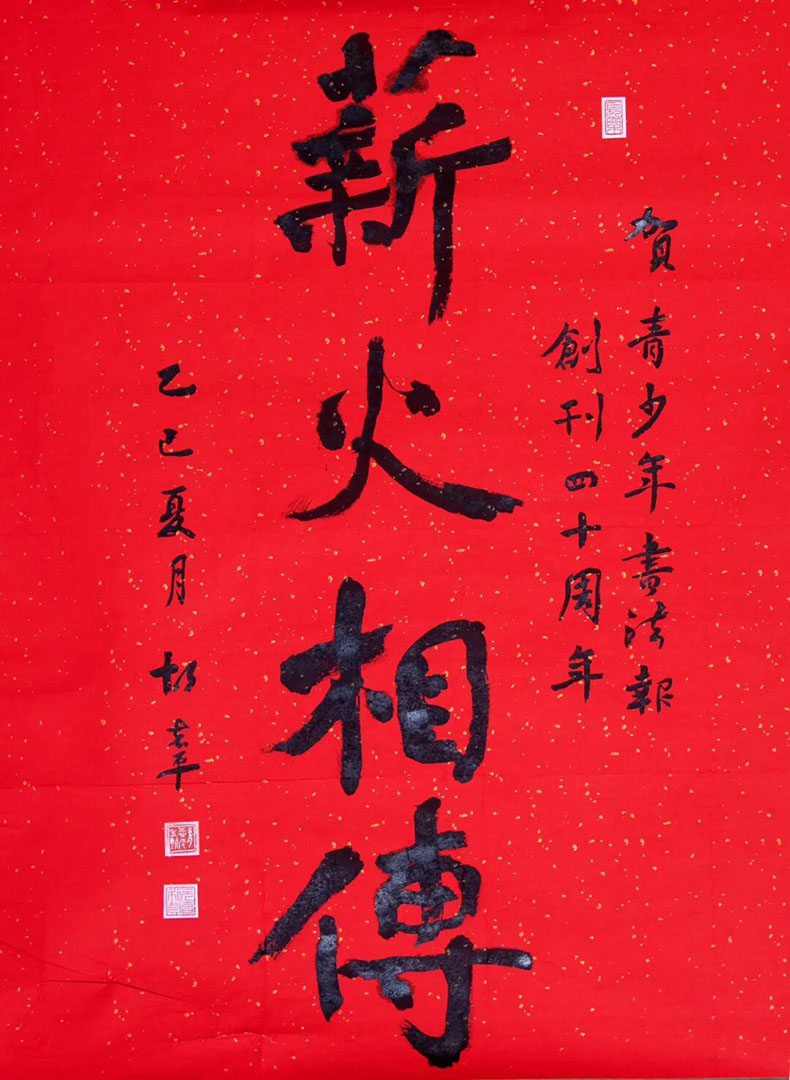 賀青少年書法報
創刊四十周年
薪火相傳
乙巳夏月 胡志平